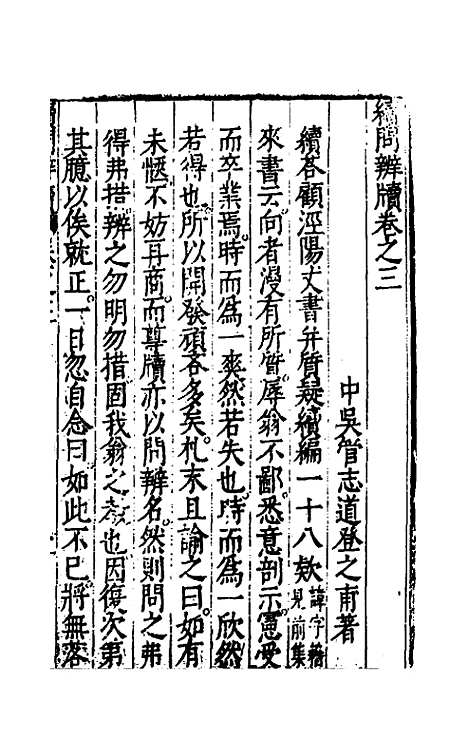 續問辨牘卷之三
中吳管志道登之甫著
續答顧涇陽丈書并質疑續編一十八欵諱字籍見前集
來書云向者漫有所質辱翁不鄙悉意剖示憲受
而卒業焉時而爲一爽然若失也時而爲一欣然
若得也所以開發頑吝多矣札末且諭之曰如有
未愜不妨再商而尊牘亦以問辨名然則問之弗
得弗措辨之勿明勿措固我翁之教也因復次第
其臆以俟就正一日忽自念曰如此不已將無落